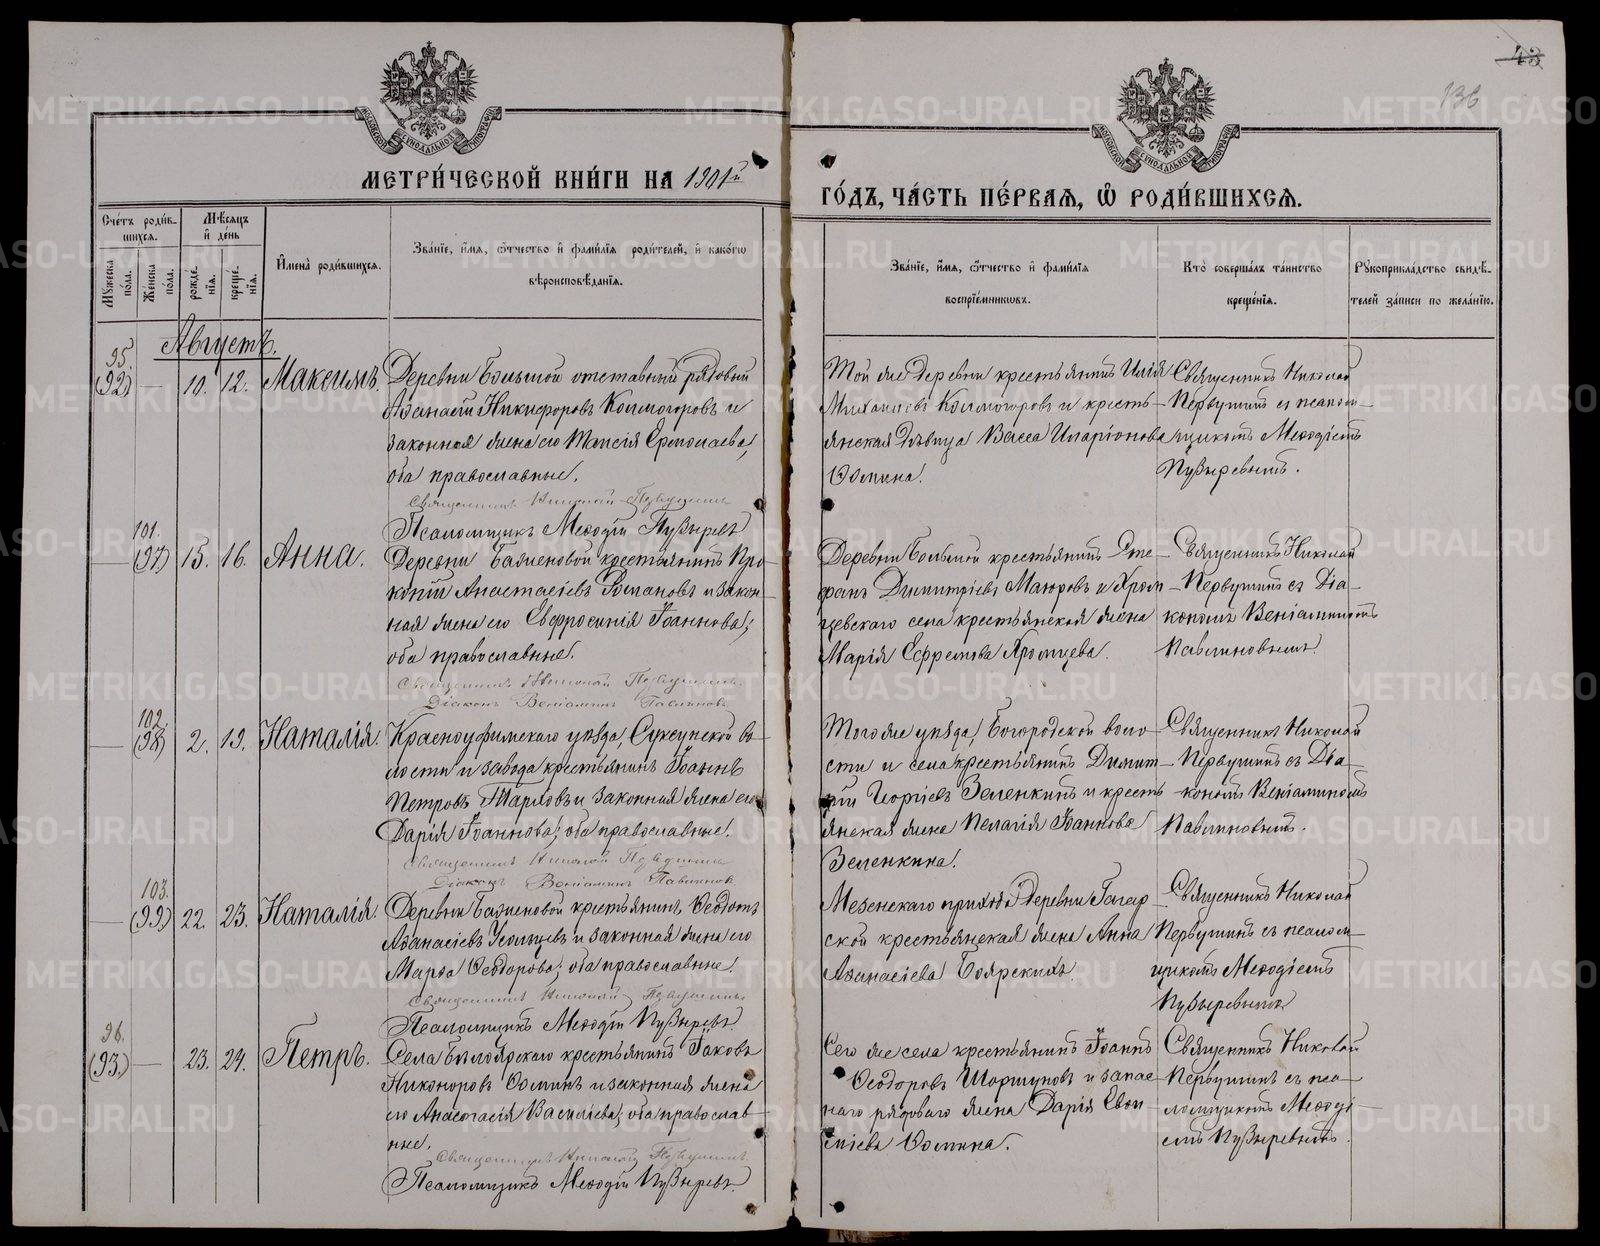 43
136
МЕТРИ́ЧЕСКОЙ КНИ́ГИ НА 1901й
ГО́ДЪ, ЧА́СТЬ ПЕ́РВАЯ, Ѡ҆ РОДИ́ВШИХСЯ.
Сче́тъ роди́в-
шихся.
Му́жеска по́ла.
Же́нска по́ла.
Мѣ́сяцъ
и҆ де́нь
рожде́нїя.
креще́нїя.
И҆мена̀ роди́вшихся.
Зва́нїе, и҆́мя, ѻ҆́тчество и҆ фами́лїя роди́телей, и҆ како́гѡ
вѣроисповѣ́данїя.
Зва́нїе, и҆́мя, ѻ҆́тчество и҆ фами́лїя
воспрїе́мниковъ.
Кто̀ соверша́лъ та́инство
креще́нїя.
Рꙋкоприкла́дство свидѣ́-
телей за́писи по жела́нїю.
Августъ.
95.
(92)
10.
12.
Максимъ.
Деревни Большой отставный рядовый
Аѳанасій Никифоровъ Колмогоровъ и
законная жена его Таисія Ермолаева,
оба православные.
Священникъ Николай Первушинъ
Псаломщикъ Меѳодій Пузыревъ
Той же деревни крестьянинъ Илія
Михаиловъ Колмогоровъ и кресть-
янская дѣвица Васса Иларіонова
Ѳомина.
Священникъ Николай
Первушинъ съ псалом-
щикомъ Меѳодіемъ
Пузыревымъ.
101.
(97)
15.
16.
Анна.
Деревни Баженовой крестьянинъ Про-
копій Анастасіевъ Романовъ и закон-
ная жена его Евфросинія Іоаннова;
оба православные.
Священникъ Николай Первушинъ
Діаконъ Веніаминъ Павлиновъ
Деревни Большой крестьянинъ Сте-
фанъ Димитріевъ Маюровъ и Хром-
цевскаго села крестьянская жена
Марія Ефремова Хромцева.
Священникъ Николай
Первушинъ съ Діа-
кономъ Веніаминомъ
Павлиновымъ.
102.
(98)
2.
19.
Наталія.
Красноуфимскаго уѣзда, Суксунской во-
лости и завода крестьянинъ Іоаннъ
Петровъ и законная жена его
Дарія Іоаннова; оба православные.
Священникъ Николай Первушинъ
Діаконъ Веніаминъ Павлиновъ
Того же уѣзда, Богородской воло-
сти и села крестьянинъ Димит-
рій Георгіевъ Зеленкинъ и кресть-
янская жена Пелагія Іоаннова
Зеленкина.
Священникъ Николай
Первушинъ съ Діа-
кономъ Веніаминомъ
Павлиновымъ.
103.
(99)
22.
23.
Наталія.
Деревни Баженовой крестьянинъ Ѳеодотъ
Аѳанасіевъ Усольцевъ и законная жена его
Марѳа Ѳеодорова; оба православные.
Священникъ Николай Первушинъ
Псаломщикъ Меѳодій Пузыревъ
Мезенскаго прихода деревни Гагар-
ской крестьянская жена Анна
Аѳанасіева Боярскихъ
Священникъ Николай
Первушинъ съ псалом-
щикомъ Меѳодіемъ
Пузыревымъ
96.
(93.)
23.
24.
Петръ.
Села Бѣлоярскаго крестьянинъ Іаковъ
Никоноровъ Ѳоминъ и законная жена
его Анастасія Василіева; оба православ-
ные.
Священникъ Николай Первушинъ
Псаломщикъ Меѳодій Пузыревъ
Сего же села крестьянинъ Іоаннъ
Ѳеодоровъ Шаршуновъ и запас-
наго рядоваго жена Дарія
Ѳомина.
Священникъ Николай
Первушинъ съ пса-
ломщикомъ Меѳоді-
емъ Пузыревымъ.
METRIKI.GASO-URAL.RU